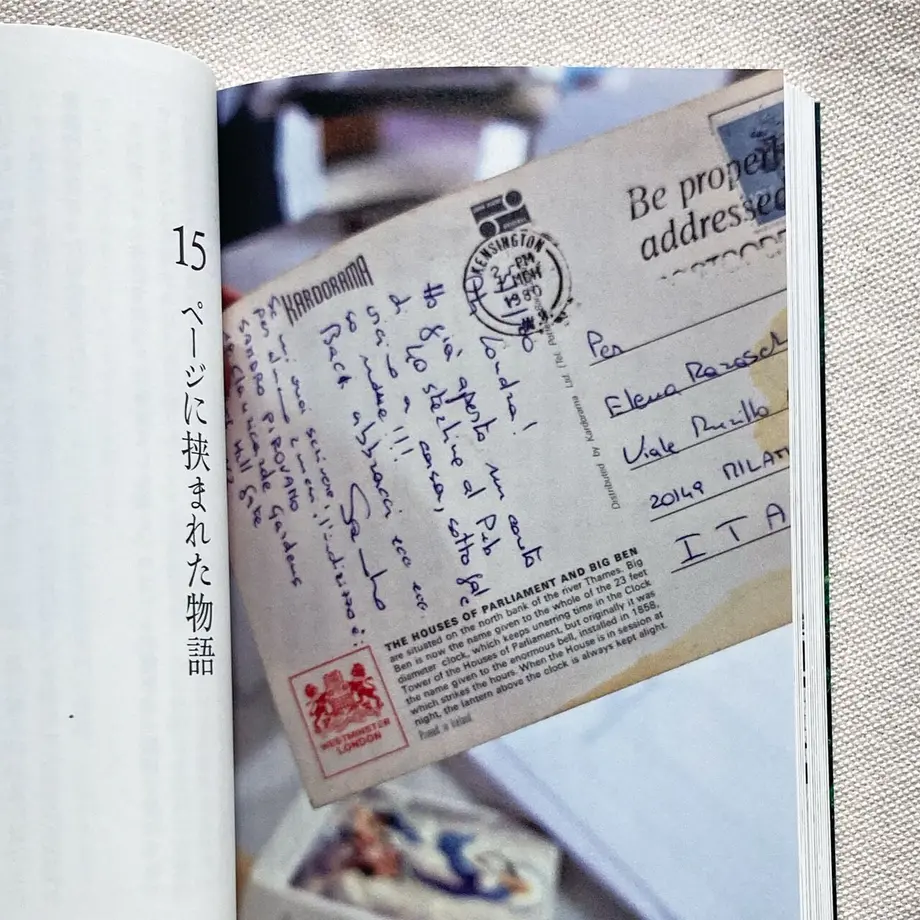 15
ページに挟まれた物語
KARDORAMA
KENSINGTON
PM
1980
Be properly
addressed
POSTCODE
Londra!
Ho già aperto un conto
di 40 sterline al Pub
vicino a casa, sotto
!!!
Back abbracci
Sandro
mi vuoi scrivere, l'indirizzo è:
SANDRO PIROVANO
Clanricarde Gardens
Hill Gate
Distributed by Kardorama Ltd.
Per
Elena
Viale Murillo
20149 MILAN
ITA
THE HOUSES OF PARLIAMENT AND BIG BEN
are situated on the north bank of the river Thames. Big
Ben is now the name given to the whole of the 23 feet
diameter clock, which keeps unerring time in the Clock
Tower of the Houses of Parliament, but originally it was
the name given to the enormous bell, installed in 1858,
which strikes the hours. When the House is in session at
night, the lantern above the clock is always kept alight.
Printed in Ireland
WESTMINSTER
LONDON